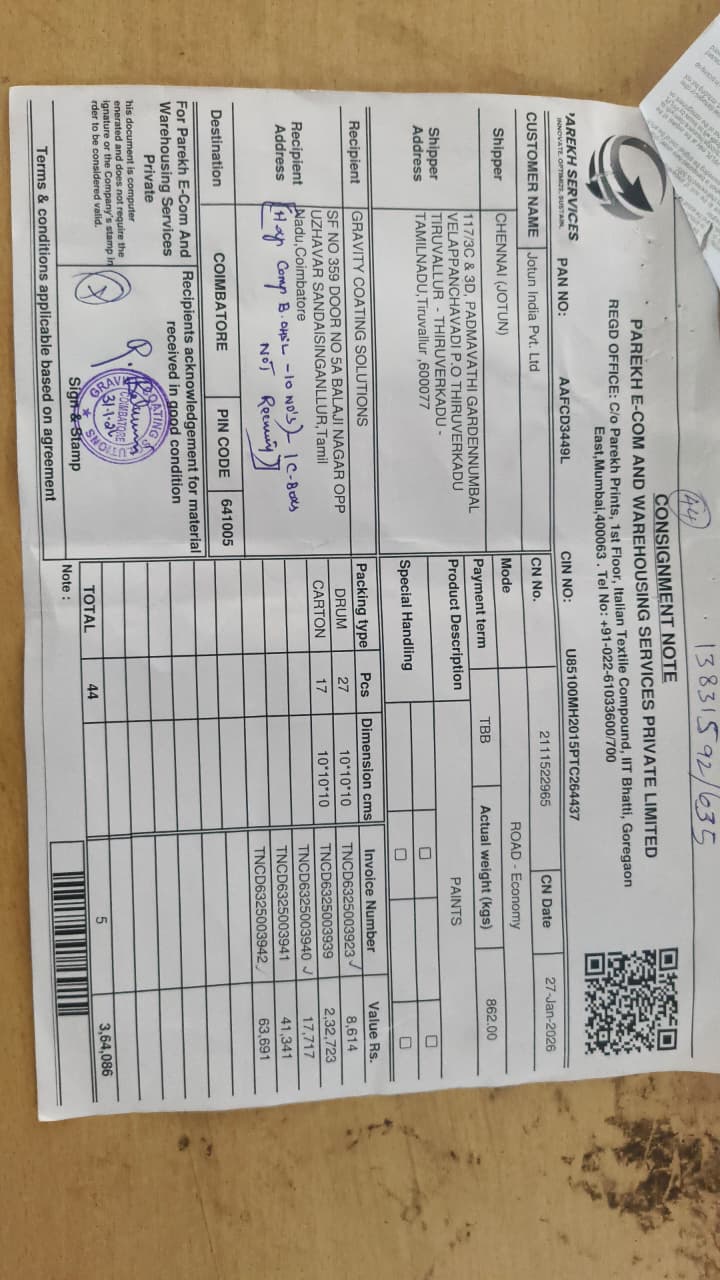 A4
138315 92/635
CONSIGNMENT NOTE
PAREKH E-COM AND WAREHOUSING SERVICES PRIVATE LIMITED
REGD OFFICE: C/o Parekh Prints, 1st Floor, Italian Textile Compound, IIT Bhatti, Goregaon
East,Mumbai,400063 . Tel No: +91-022-61033600/700
PAREKH SERVICES
INNOVATE. OPTIMIZE. SUSTAIN.
PAN NO: AAFCD3449L CIN NO: U85100MH2015PTC264437
CUSTOMER NAME Jotun India Pvt. Ltd
CN No. 2111522965 CN Date 27-Jan-2026
Shipper CHENNAI (JOTUN)
Mode ROAD - Economy
Shipper Address
117/3C & 3D, PADMAVATHI GARDENNUMBAL
VELAPPANCHAVADI P.O THIRUVERKADU
TIRUVALLUR - THIRUVERKADU -
TAMILNADU,Tiruvallur ,600077
Payment term TBB Actual weight (kgs) 862.00
Product Description PAINTS
Special Handling
Recipient GRAVITY COATING SOLUTIONS
Recipient Address
SF NO 359 DOOR NO 5A BALAJI NAGAR OPP
UZHAVAR SANDAISINGANLLUR,Tamil
Nadu,Coimbatore
Comp B. - 10 NO'S)
NOT
Destination COIMBATORE PIN CODE 641005
Packing type Pcs Dimension cms Invoice Number Value Rs.
DRUM 27 10*10*10 TNCD6325003923 8,614
CARTON 17 10*10*10 TNCD6325003939 2,32,723
TNCD6325003940 17,717
TNCD6325003941 41,341
TNCD6325003942 63,691
TOTAL 44 5 3,64,086
Note :
For Parekh E-Com And
Warehousing Services
Private
his document is computer
enerated and does not require the
ignature or the Company's stamp in
rder to be considered valid.
Recipients acknowledgement for material
received in good condition
COIMBATORE
Sign & Stamp
Terms & conditions applicable based on agreement